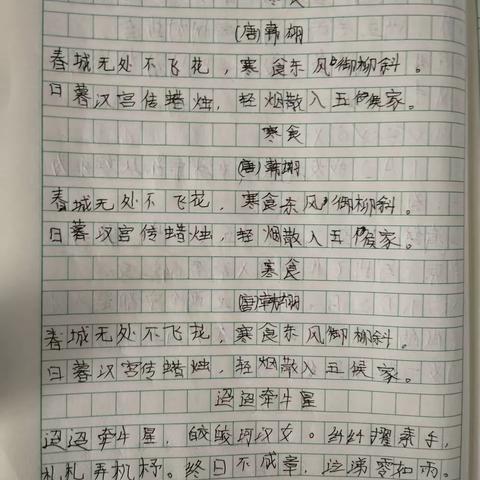 寒食
(唐)韩翃
春城无处不飞花，寒食东风御柳斜。
日暮汉宫传蜡烛，轻烟散入五侯家。
寒食
(唐)韩翃
春城无处不飞花，寒食东风御柳斜。
日暮汉宫传蜡烛，轻烟散入五侯家。
寒食
(唐)韩翃
春城无处不飞花，寒食东风御柳斜。
日暮汉宫传蜡烛，轻烟散入五候家。
迢迢牵牛星
迢迢牵牛星，皎皎河汉女。纤纤擢素手，
札札弄机杼。终日不成章，泣涕零如雨。